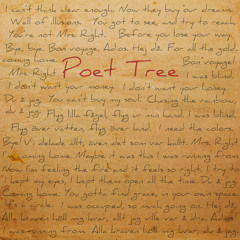 I can't think clear enough. Now they buy our dreams.
Wall of illusions. You got to see, and try to reach.
You're not Mrs. Right. Before you lose your way.
Bye, bye. Bon voyage, Adios. Hej då. For all the gold.
coming home. Bon voyage!
Mrs. Right Poet Tree I was blind.
I don't want your money. I don't want your honey.
Du & jag. You can't buy my soul. Chasing the rainbow,
du & jag. Flyg lilla fågel, flyg ur min hand. I was blind.
Flyg över vatten, flyg över land. I need the colors.
Bye! Vi delade allt, även det som var ballt. Mrs. Right
Coming home. Maybe it was this I was running from
Now I'm feeling the fire and it feels so right. I try to
I kept my eyes, I kept them open all the time. Du & jag
Coming home. You gotta find grace, in your own space.
It's a circle. I was occupied, so much going on. Hej då.
Alla kraven höll mig kvar, allt jag ville var & dra. Adios
I was running from. Alla kraven höll mig kvar, du & jag.